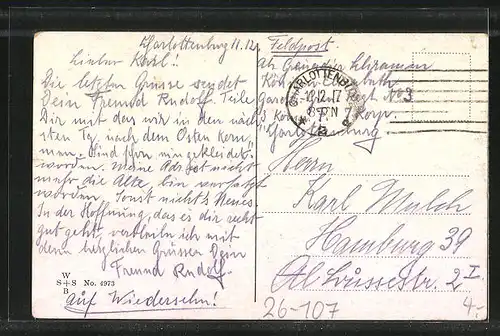 Charlottenburg 11.12.
Lieber Karl!
Die letzten Grüsse sendet
Dein Freund Rudolf. Teile
Dir mit das wir in den näch
sten Tg. nach dem Osten kom
men. Sind schon eingekleidet
worden. Meine Adr. ist nicht
mehr die Alte, bin versetzt
worden. Sonst nicht's Neues.
In der Hoffnung, das es dir recht
gut geht verbleib ich mit
den herzlichen Grüssen Dein
Freund Rudolf.
auf Wiedersehn!
W
S+S No. 4973
B
Feldpost.
Als Grenadier Schramm
Kön. Elisabeth
Garde Regt No 3
3 Korp.
Charlottenburg
CHARLOTTENBURG
12.12.17
8-9N
Herrn
Karl Mulch
Hamburg 39
2 I.
26-107
4.-